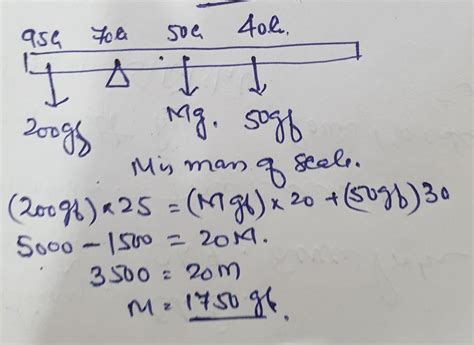 95cm 70cm 50cm 40cm.
200gf Mg. 50gf
M is mass of scale.
(200gf) × 25 = (Mgf) × 20 + (50gf) 30
5000 - 1500 = 20M.
3500 = 20M
M = 1750 gf.